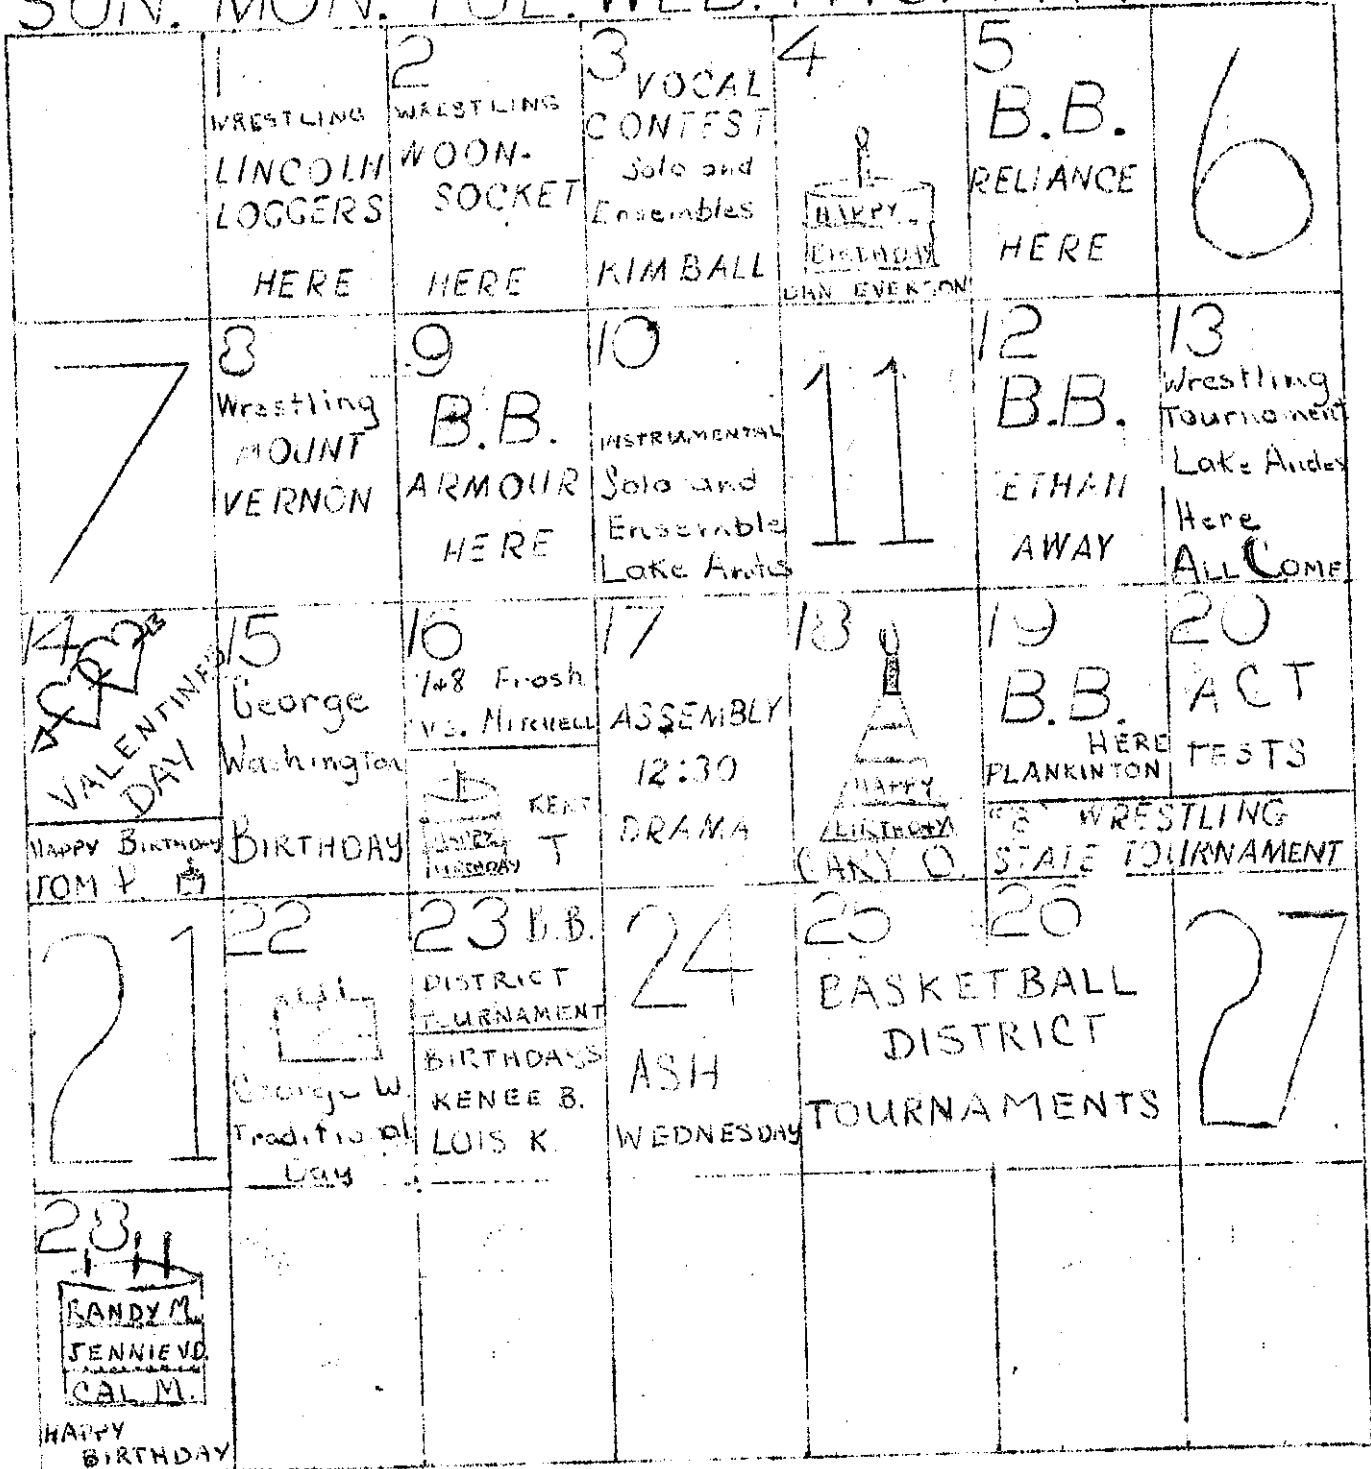 SUN. MON. TUE. WED.
1
WRESTLING
LINCOLN
LOGGERS
HERE
2
WRESTLING
WOON-
SOCKET
HERE
3 VOCAL
CONTEST
Solo and
Ensembles
KIMBALL
4
HAPPY
BIRTHDAY
DAN EVERSON
5
B.B.
RELIANCE
HERE
6
7
8
Wrestling
MOUNT
VERNON
9
B.B.
ARMOUR
HERE
10
INSTRUMENTAL
Solo and
Ensemble
Lake Andes
11
12
B.B.
ETHAN
AWAY
13
Wrestling
Tournament
Lake Andes
Here
ALL COME
14
VALENTINES
DAY
HAPPY BIRTHDAY
TOM P.
15
George
Washington
BIRTHDAY
16
7+8 Frosh
VS. MITCHELL
KENT
T
HAPPY
BIRTHDAY
17
ASSEMBLY
12:30
DRAMA
18
HAPPY
BIRTHDAY
O.
19
B.B.
HERE
PLANKINTON
20
ACT
TESTS
"B" WRESTLING
STATE TOURNAMENT
21
22
George W.
Traditional
Day
23 B.B.
DISTRICT
TOURNAMENT
BIRTHDAYS
KENEE B.
LOIS K.
24
ASH
WEDNESDAY
25 26
BASKETBALL
DISTRICT
TOURNAMENTS
27
28
RANDY M.
JENNIE V.D.
CAL M.
HAPPY
BIRTHDAY